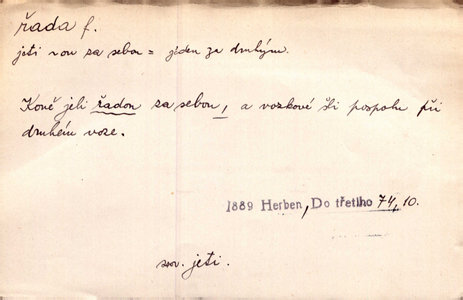 řada f.
jeti řadou za sebou = jeden za druhým.
Koně jeli řadou za sebou, a vozkové šli pospolu při
druhém voze.
1889 Herben, Do třetího 74, 10.
srov. jeti.